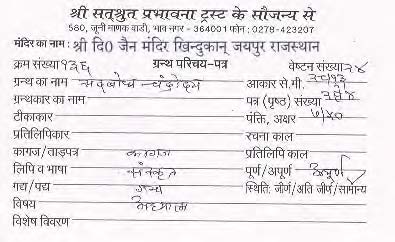 श्री सत्श्रुत प्रभावना ट्रस्ट के सौजन्य से
580, जूनी माणक वाडी, भाव नगर - 364001 फोन : 0278-423207
मंदिर का नाम : श्री दि0 जैन मंदिर खिन्दुकान् जयपुर राजस्थान
क्रम संख्या १३६ ग्रन्थ परिचय-पत्र वेष्टन संख्या २४
ग्रन्थ का नाम आकार से.मी.
ग्रन्थकार का नाम पत्र (पृष्ठ) संख्या
टीकाकार पंक्ति, अक्षर ७/४०
प्रतिलिपिकार रचना काल
कागज/ताड़पत्र कागज प्रतिलिपि काल
लिपि व भाषा संस्कृत पूर्ण/अपूर्ण अपूर्ण
गद्य/पद्य गद्य स्थिति: जीर्ण/अति जीर्ण/सामान्य
विषय अध्यात्म
विशेष विवरण